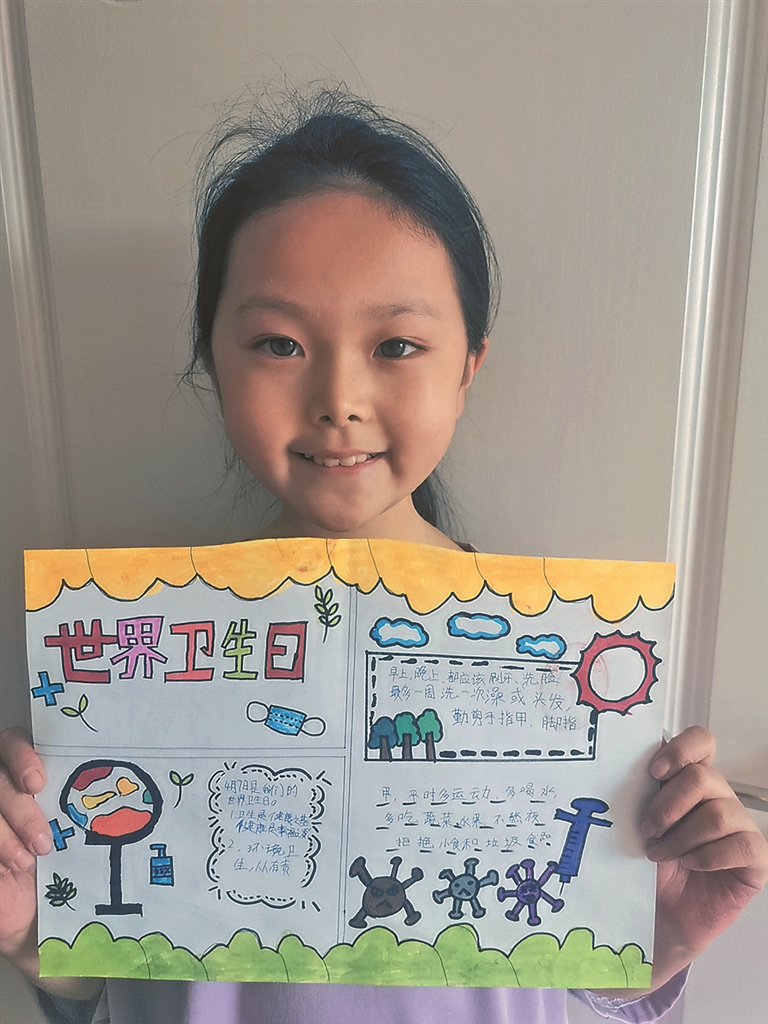 世界卫生日
早上,晚上,都应该刷牙、洗脸,
最多一周洗一次澡或头发,
勤剪手指甲、脚指
甲,平时多运动,多喝水,
多吃蔬菜水果不熬夜
拒绝小食和垃圾食品
4月7日是我们的
世界卫生日。
1.卫生是个健康之
2.环境卫
生,人人有责